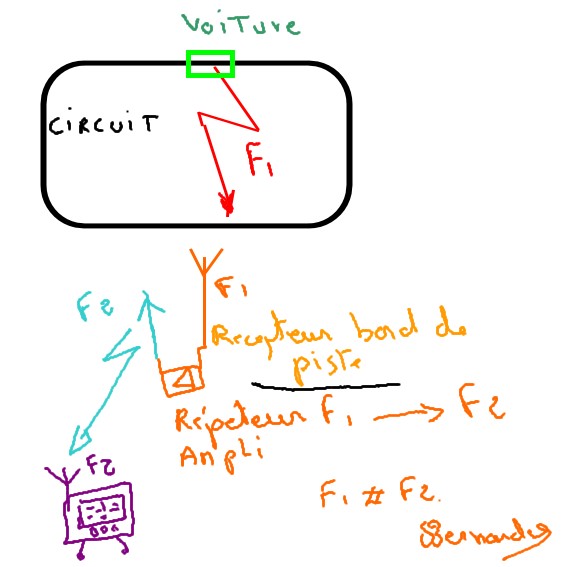 VOITURE
CIRCUIT
F1
F1
F2
Recepteur bord de
piste
Répeteur F1 → F2
Ampli
F2
F1 ≠ F2.